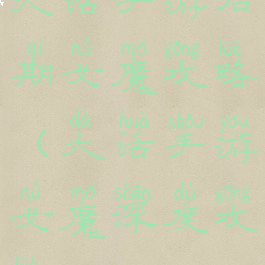 大话手游后
qī nǚ mó gōng lüè
期女魔攻略
dà huà shǒu yóu
（大话手游
nǚ mó shēn dù gōng
女魔深度攻